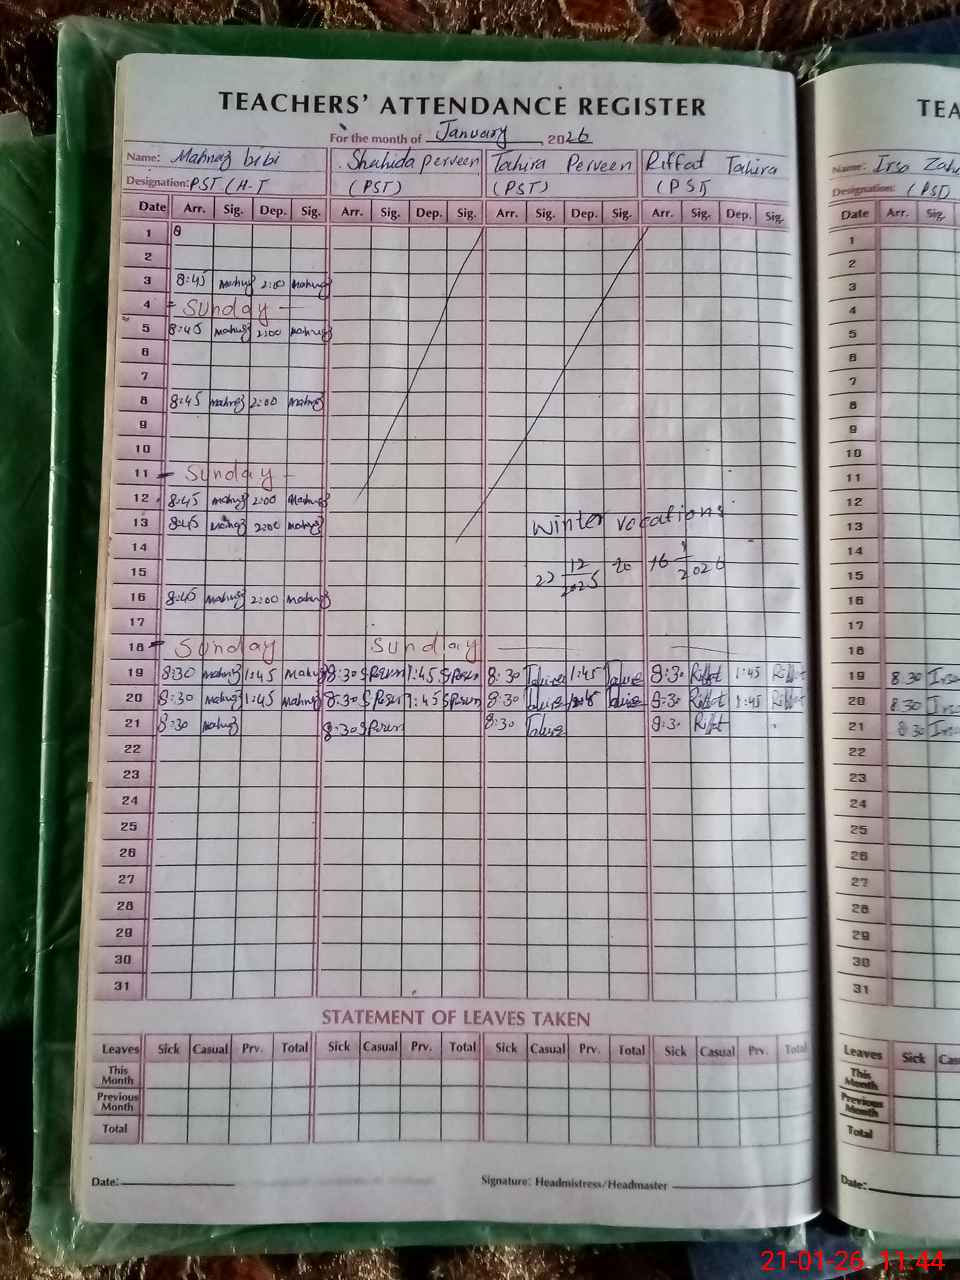 TEACHERS' ATTENDANCE REGISTER
For the month of January 2026
Name: Mahnaz bibi Shahida perveen Tahira Perveen Riffat Tahira
Designation: PST (H-T (PST) (PST) (PST)
Date Arr. Sig. Dep. Sig. Arr. Sig. Dep. Sig. Arr. Sig. Dep. Sig. Arr. Sig. Dep. Sig.
1
2
3 8:45 Mahnaz 2:00 Mahnaz
4 Sunday
5 8:45 Mahnaz 2:00 Mahnaz
6
7
8 8:45 Mahnaz 2:00 Mahnaz
9
10
11 Sunday
12 8:45 Mahnaz 2:00 Mahnaz
13 8:45 Mahnaz 2:00 Mahnaz winter vocations
14
15 22 12 2025 to 16 1 2026
16 8:45 Mahnaz 2:00 Mahnaz
17
18 Sunday Sunday
19 8:30 Mahnaz 1:45 Mahnaz 8:30 1:45 8:30 1:45 8:30 Riffat 1:45 Riffat
20 8:30 Mahnaz 1:45 Mahnaz 8:30 1:45 8:30 8:30 Riffat 1:45 Riffat
21 8:30 Mahnaz 8:30 8:30 8:30 Riffat
22
23
24
25
26
27
28
29
30
31
STATEMENT OF LEAVES TAKEN
Leaves Sick Casual Prv. Total Sick Casual Prv. Total Sick Casual Prv. Total Sick Casual Prv. Total
This Month
Previous Month
Total
Date: Signature: Headmistress/Headmaster
TEA
Name: Irsa
Designation: (PST)
Date Arr. Sig.
1
2
3
4
5
6
7
8
9
10
11
12
13
14
15
16
17
18
19 8:30 Irsa
20 8:30 Irsa
21 8:30 Irsa
22
23
24
25
26
27
28
29
30
31
Leaves Sick
This Month
Previous Month
Total
Date:
21-01-26 11:44